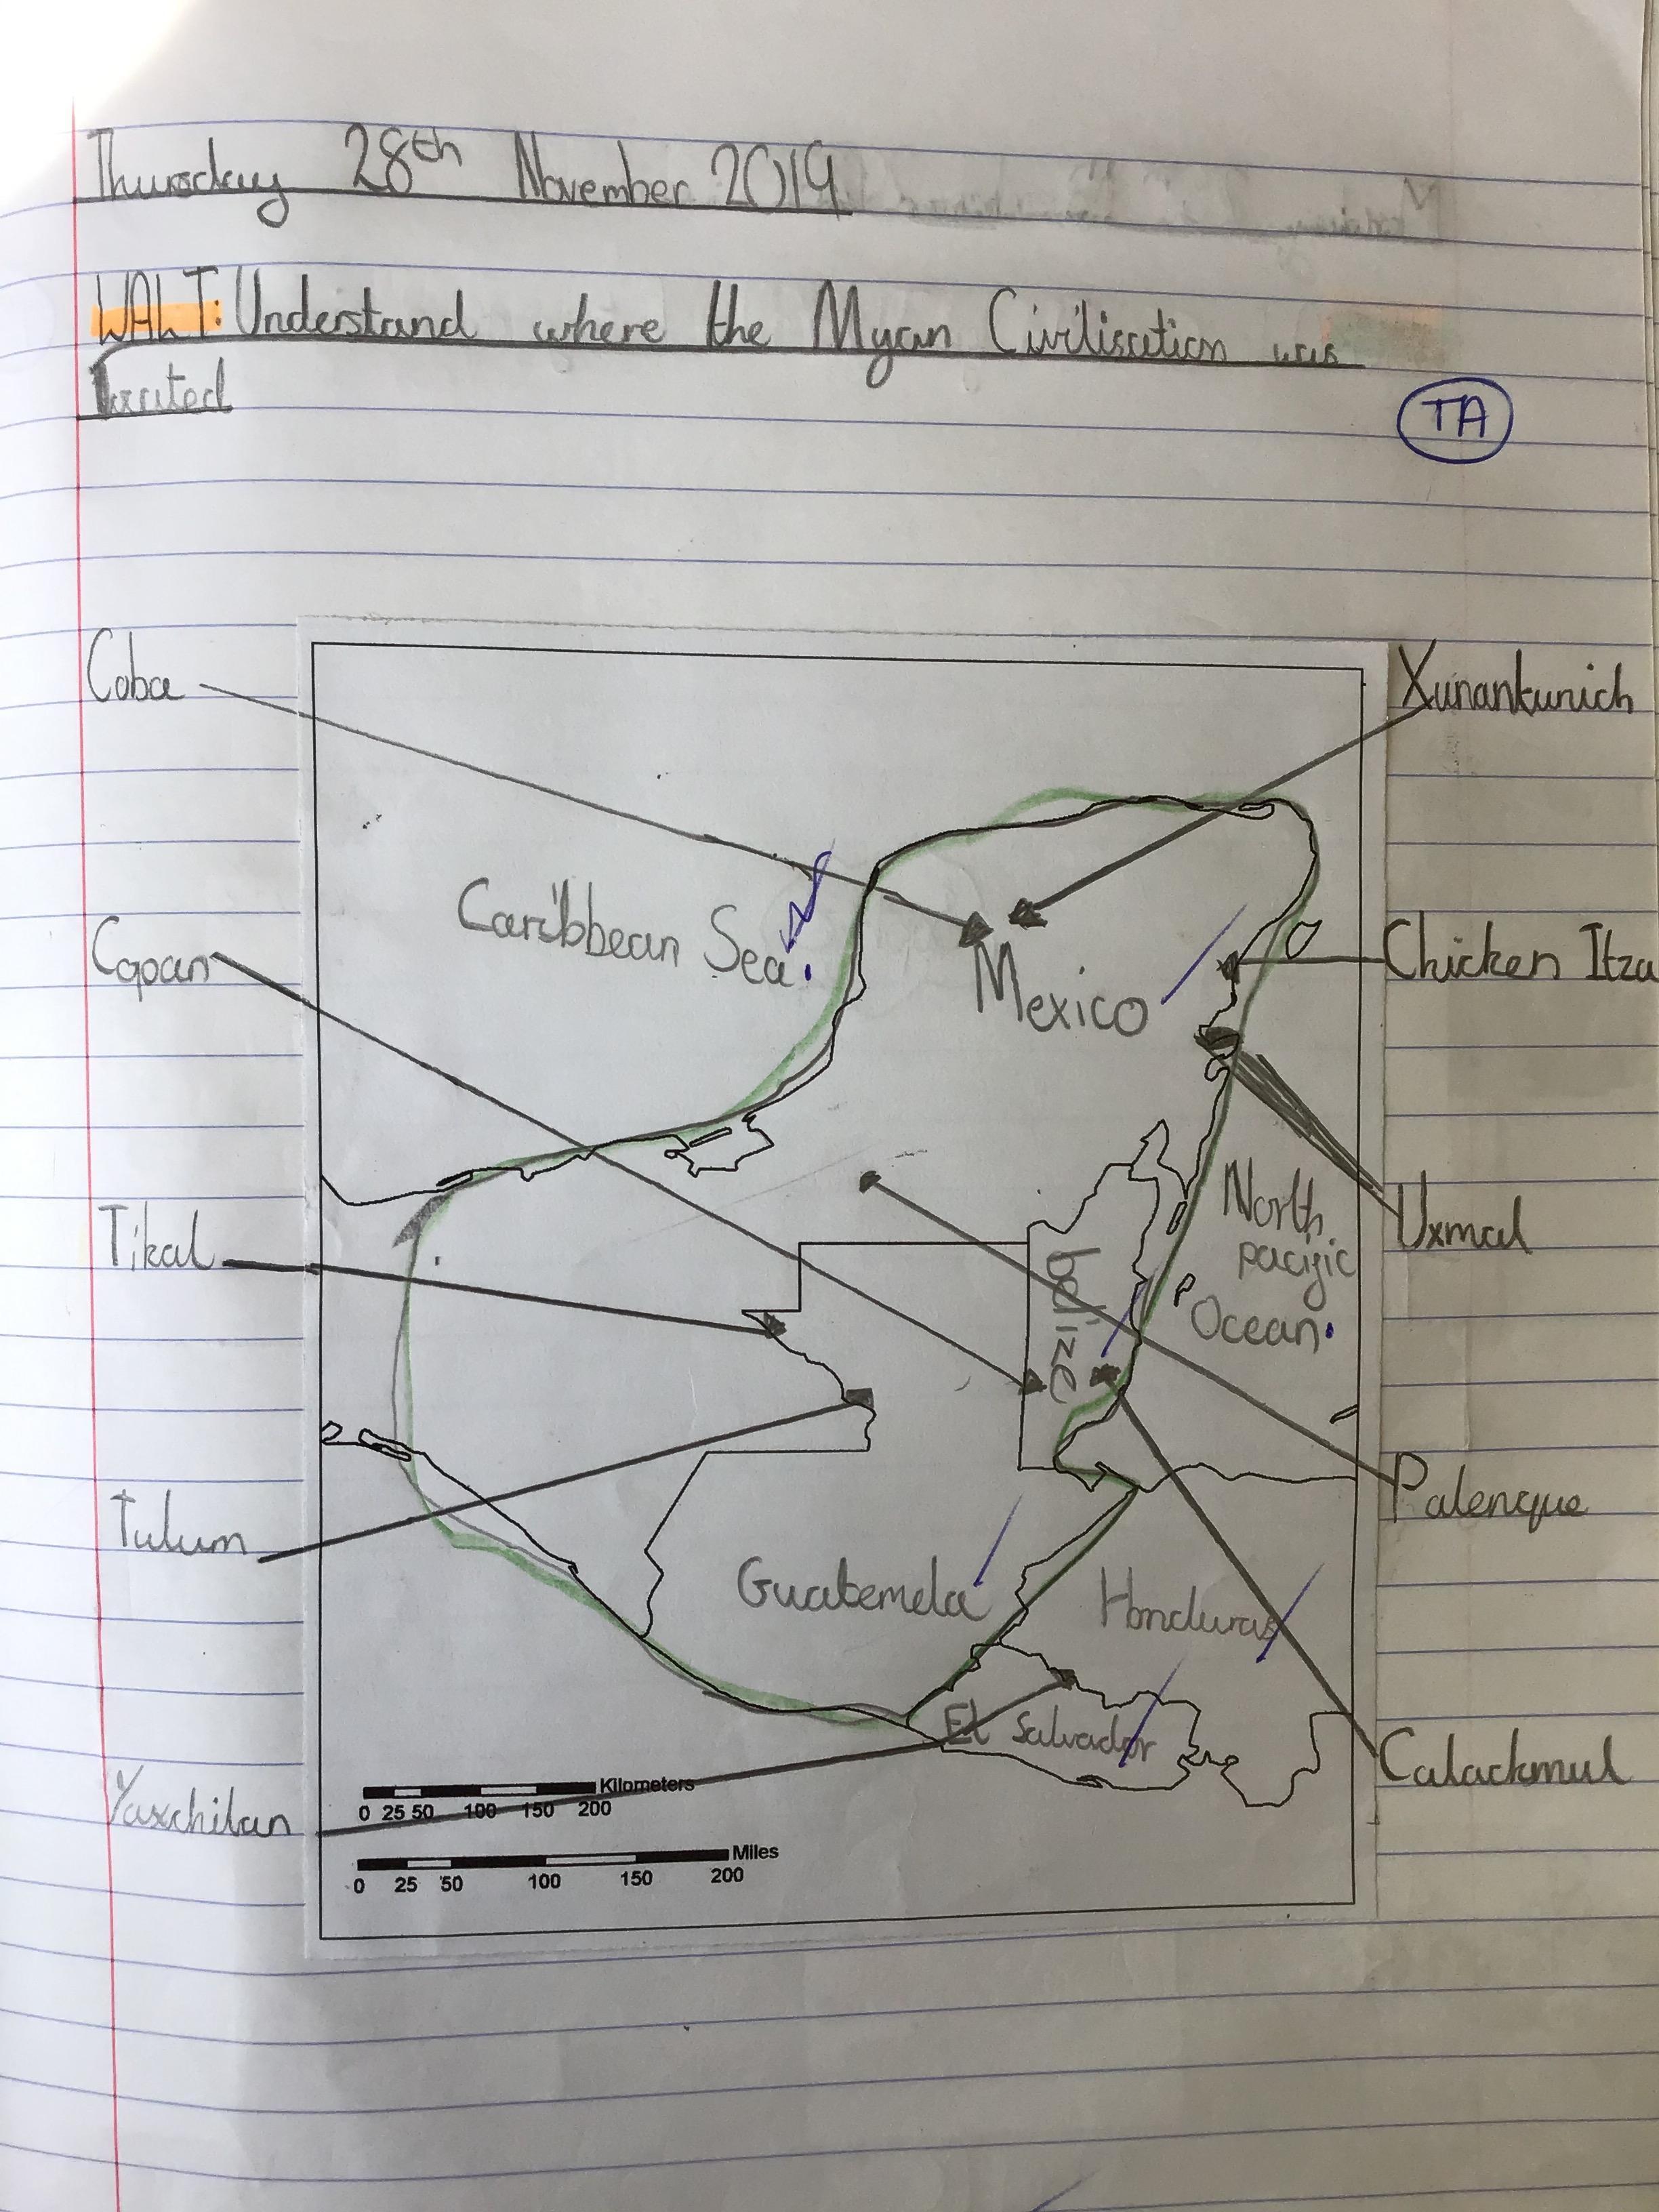 Thursday 28th November 2019
WALT: Understand where the Myan Civilisation was
located
TA
Coba
Xunankunich
Caribbean Sea.
Copan
Mexico
Chicken Itza
Tikal
North
pacific
Ocean.
Uxmal
belize
Tulum
Palenque
Guatemela
Honduras
El Salvador
Yaxchilan
Calackmul
Kilometers
0 25 50 100 150 200
Miles
0 25 50 100 150 200